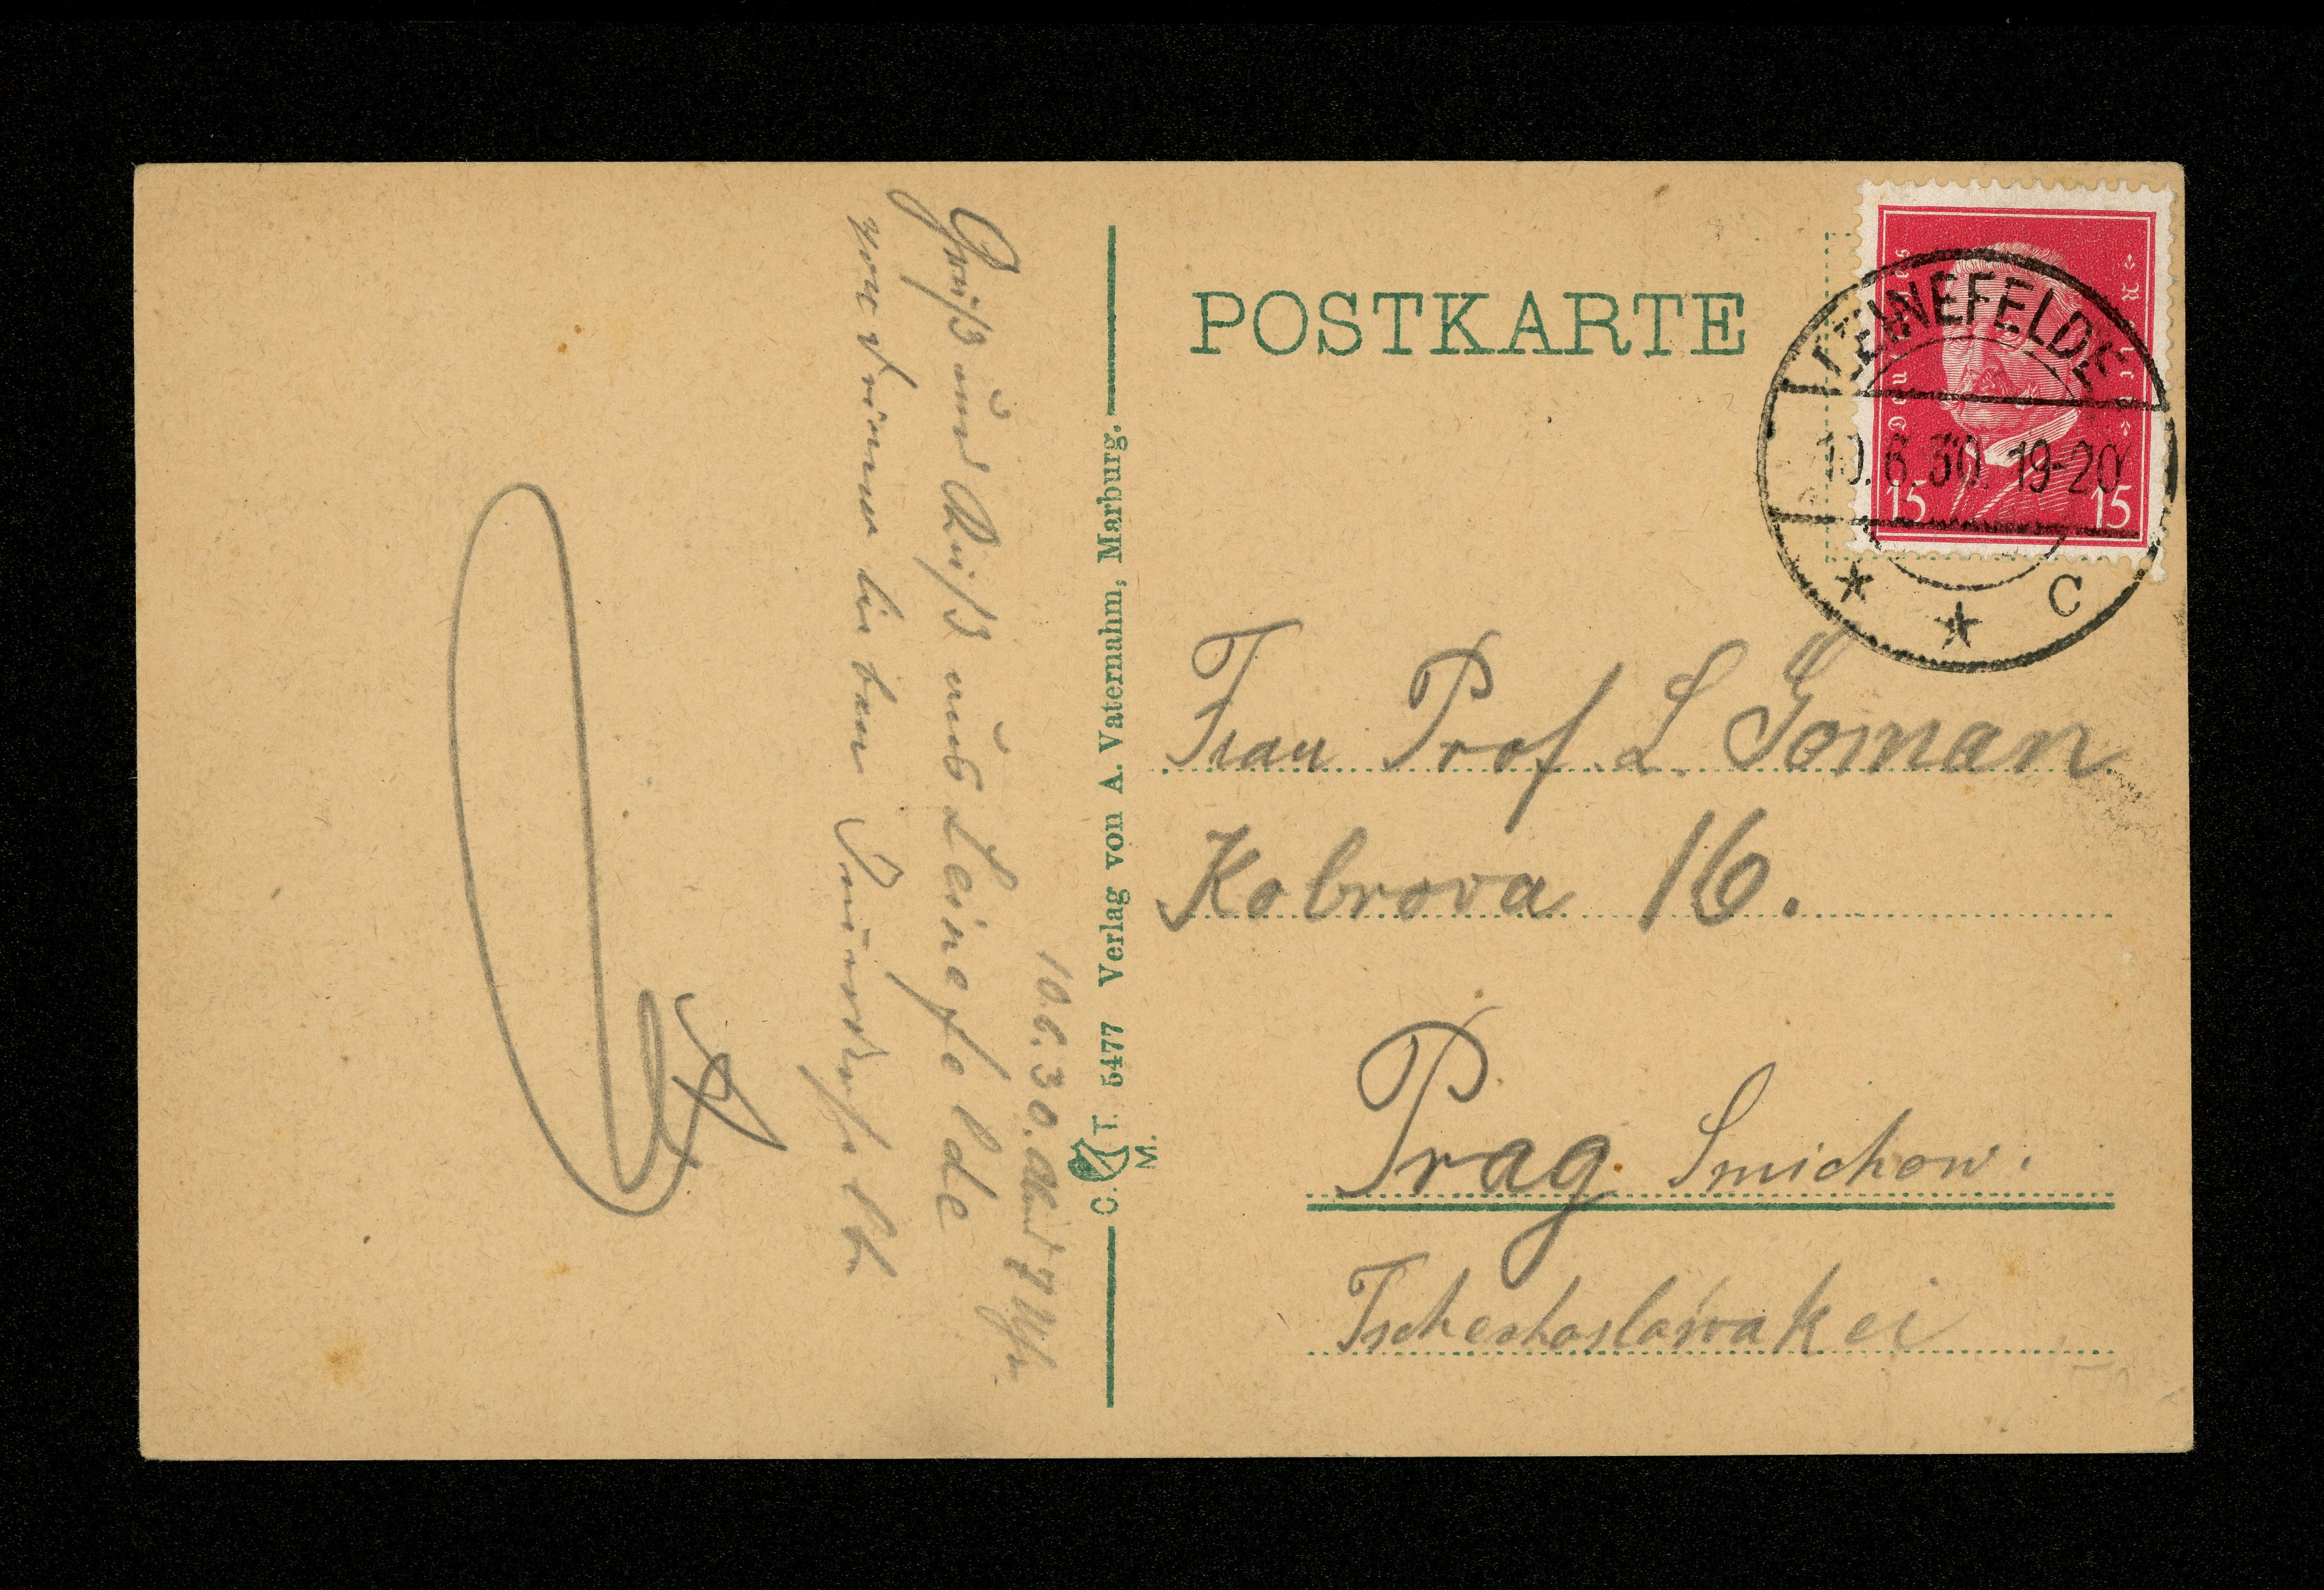 10.6.30. Abend 7 Uhr
Gruß und Kuß aus Leinefelde
von Deinem lieben
C. T. M. 5477 Verlag von A. Vaternahm, Marburg.
POSTKARTE
Deutsches Reich
15 15
LEINEFELDE
10.6.30. 19-20
* * C
Frau Prof. L. Goman
Kobrova 16.
Prag Smichow.
Tschechoslowakei